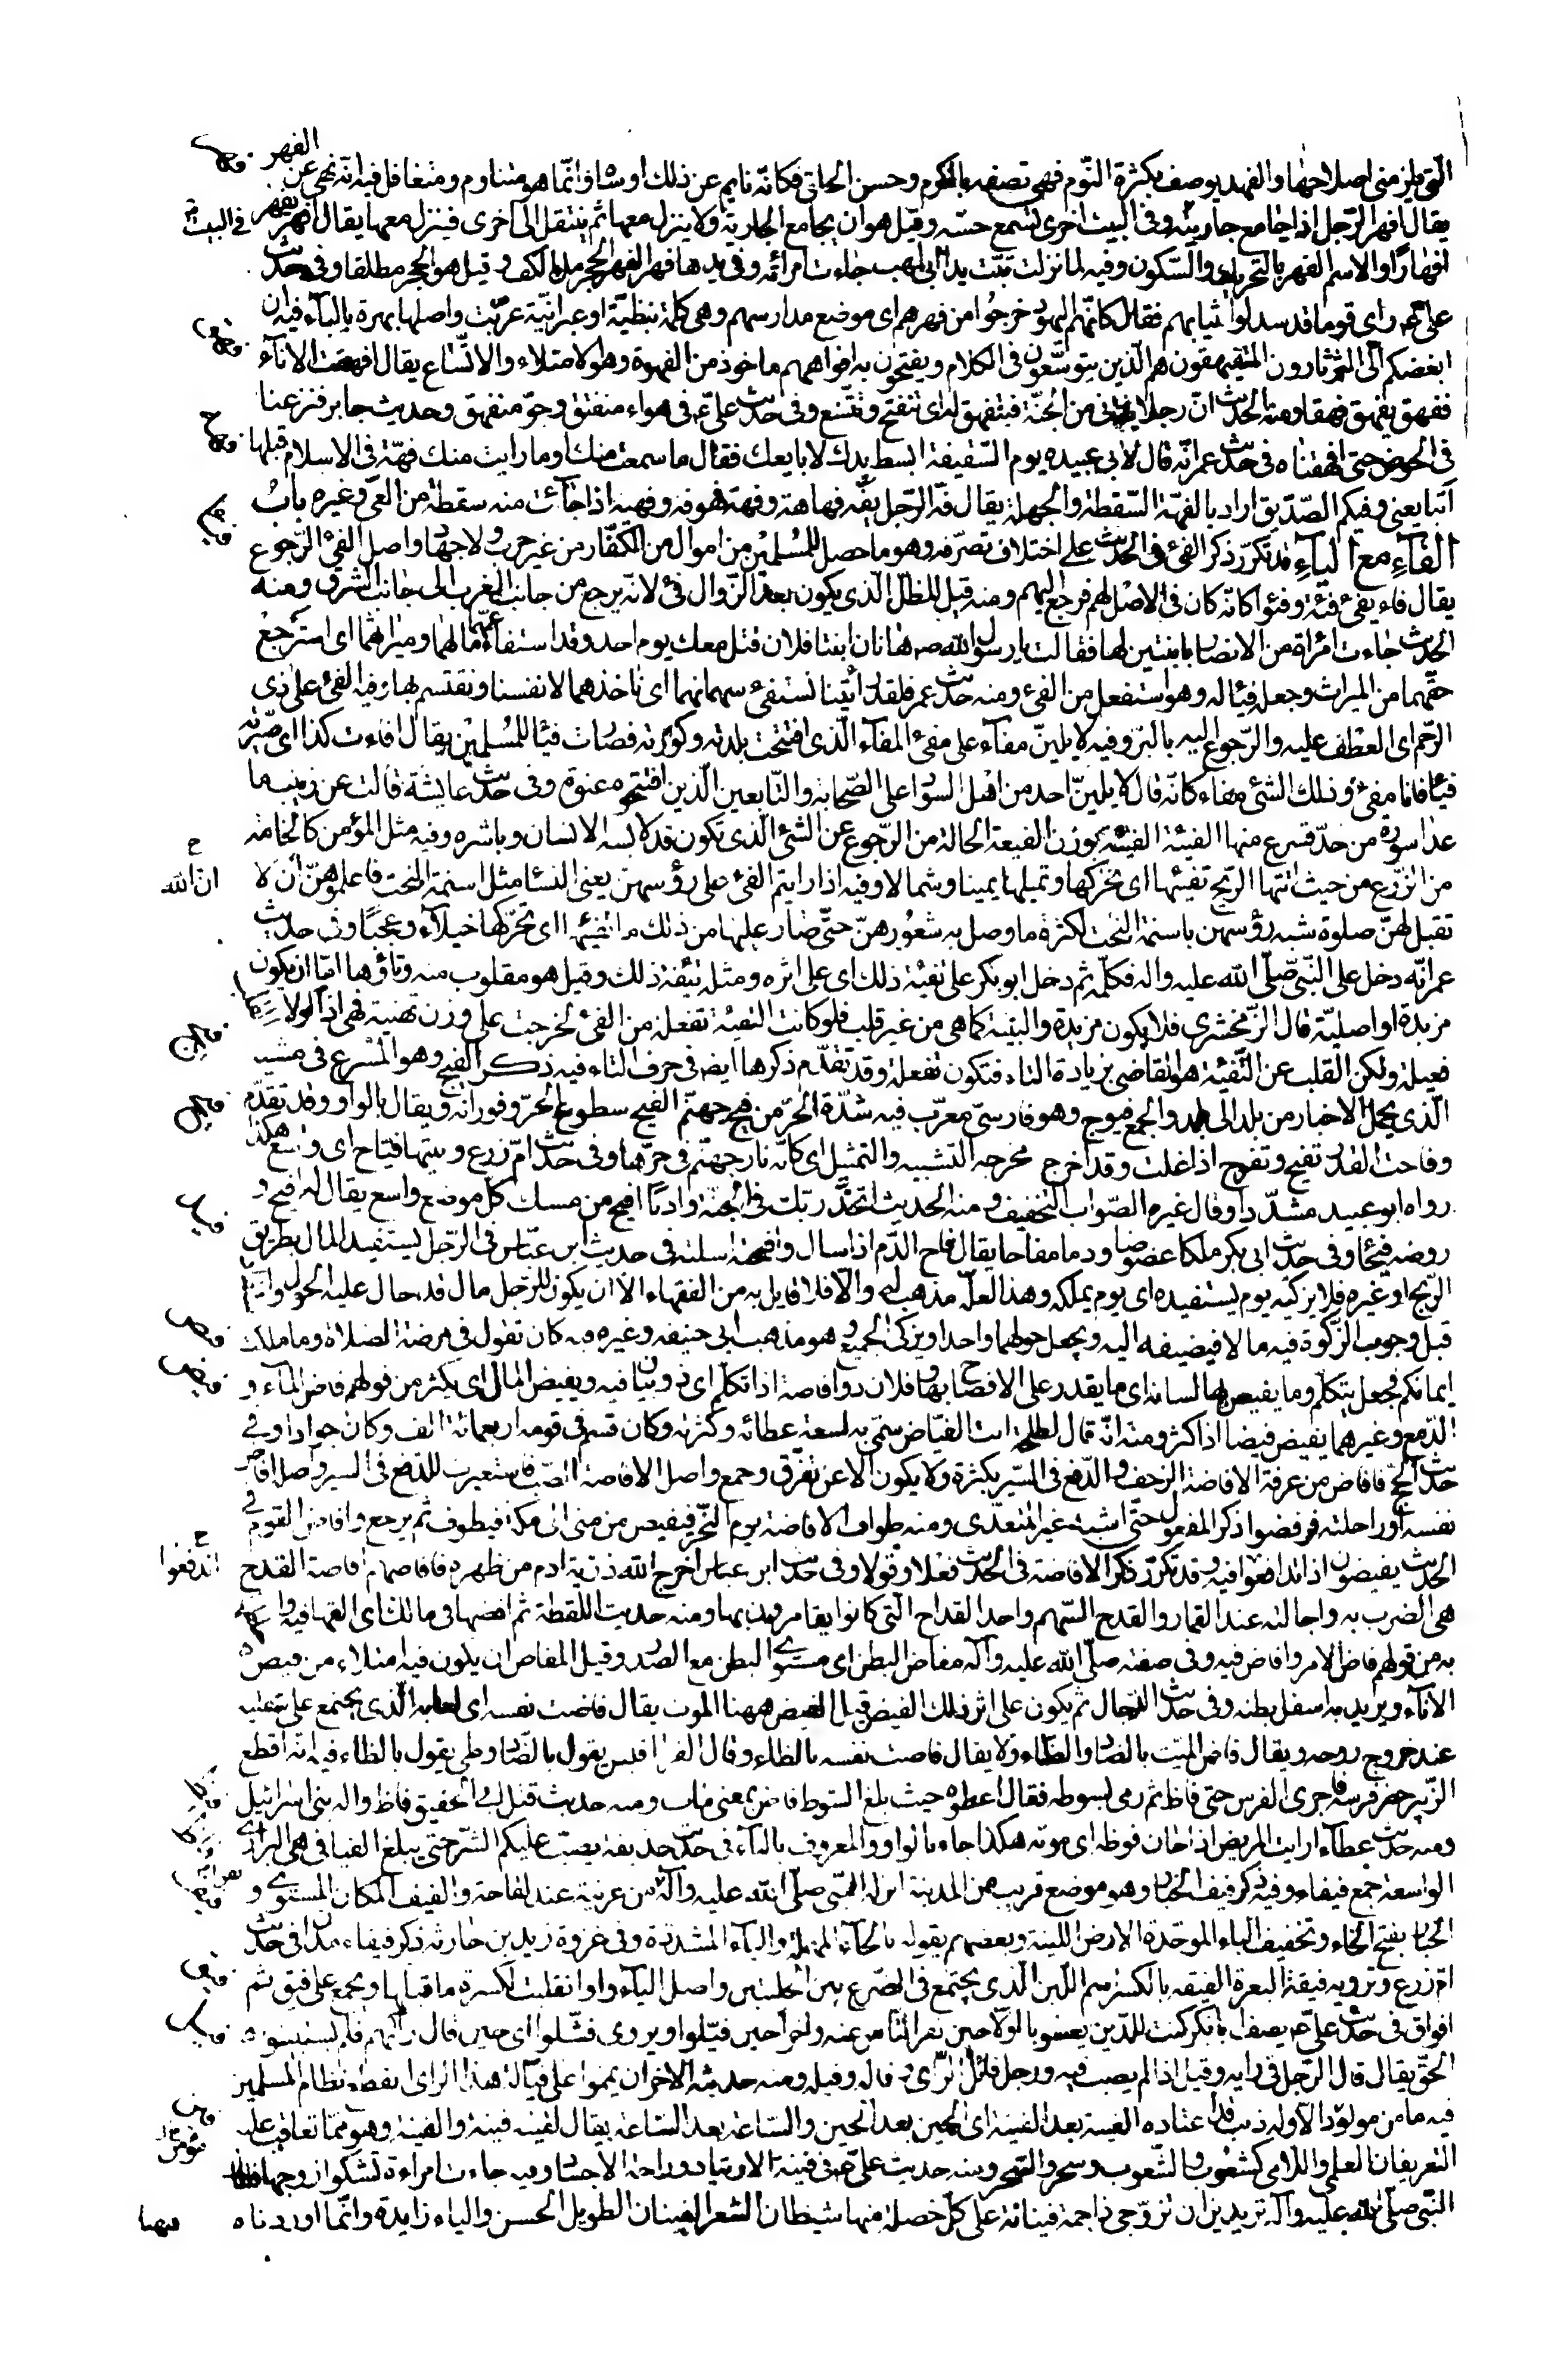 الّتى يلزمنى اصلاحها والفهد يوصف بكثرة النّوم فهى تصفه بالكرم وحسن الخلق فكانّه نايم عن ذلك او ساه وانّما هو متناوم ومتغافل فيه انّه نهى عن الفهر
يقال افهر الرّجل اذا جامع جاريته وفى البيت اخرى تسمع حسّه وقيل هو ان يجامع الجارية ولا ينزل معها ثم ينتقل الى اخرى فينزل معها يقال افهر يفهر
افهارًا والاسم الفهر بالتحريك والسّكون وفيه لما نزلت تبّت يدا ابى لهب جاءت امراته وفى يدها فهر الفهر الحجر ملء الكف وقيل هو الحجر مطلقا وفى حديث
علىّ ع راى قوما قد سدلوا ثيابهم فقال كانّهم اليهود خرجوا من فهرهم اى موضع مدارسهم وهى كلمة نبطيّة او عبرانيّة عرّبت واصلها بهرة بالباء فيه ان
ابغضكم الىّ الثرثارون المتفيهقون هم الّذين يتوسّعون فى الكلام ويفتحون به افواههم ماخوذ من الفهق وهو الامتلاء والاتّساع يقال افهقت الاناء
ففهق يفهق فهقا ومنه الحديث انّ رجلا يدنى من الجنّة فتنفهق له اى تنفتح وتتّسع وفى حديث علىّ ع فى هواء منفتق وجوّ منفهق وحديث جابر فنزعنا
فى الحوض حتى افهقناه فى حديث عمر انّه قال لابى عبيدة يوم السّقيفة ابسط يدك لابايعك فقال ما سمعت منك او ما رايت منك فهّة فى الاسلام قبلها
اتبايعنى وفيكم الصّدّيق اراد بالفهّة السّقطة والجهلة يقال فهّ الرّجل يفهّ فهاهة وفهّة فهو فه وفهيه اذا جاءت منه سقطة من العىّ وغيره بابُ
الفاءِ مع الياءِ قد تكرّر ذكر الفئ فى الحديث على اختلاف تصرّفه وهو ما حصل للمُسلمين من اموال من الكفّار من غير حرب ولا جهاد واصل الفئ الرّجوع
يقال فاء يفئ فئة وفيئوا كانّه كان فى الاصل لهم فرجع اليهم ومنه قيل للظلّ الّذى يكون بعد الزّوال فئ لانّه يرجع من جانب الغرب الى جانب الشرق ومنه
الحديث جاءت امراة من الانصار بابنتين لها فقالت يا رسول الله ص هاتان ابنتا فلان قتل معك يوم احد وقد استفاء عمّهما مالهما وميراثهما اى استرجع
حقّهما من الميراث وجعله فيئا له وهو استفعل من الفئ ومنه حديث عمر فلقد رأيتنا نستفئ سهمانهما اى ناخذهما لانفسنا ونقتسم بها وفيه الفئ على ذى
الرّحم اى العطف عليه والرّجوع اليه بالبرّ وفيه لا يلينّ مفاء على مفئ المفاء الّذى افتتحت بلدته وكورته فصارت فيئا للمُسلمين يقال افاءت كذا اى صيّرته
فيئا فانا مفئ وذلك الشئ مفاء كانّه قال لا يلينّ احد من اهل السواد على الصّحابة والتّابعين الّذين افتتحوه عنوة وفى حديث عايشة قالت عن زينب ما
عدا سورة من حدّ تسرع منها الفيئة الفيئة بوزن الفيعة الحالة من الرّجوع عن الشئ الّذى تكون قد لابسه الانسان وباشره وفيه مثل المؤمن كالخامة
من الزّرع من حيث اتتها الريح تفيئها اى تحرّكها وتميلها يمينا وشمالا وفيه اذا رايتم الفئ على رؤسهنّ يعنى النساء مثل اسنمة البخت فاعلموهنّ ان لا
تقبل لهنّ صلوة شبه رؤسهن باسنمة البخت لكثرة ما وصل به شعورهنّ حتّى صار عليها من ذلك ما تفيئها اى تحرّكها خيلاء وعجبًا وفى حديث
عمر انّه دخل على النّبى صلّى الله عليه واله فكلّمه ثم دخل ابو بكر على تفيئة ذلك اى على اثره ومثله تئيفة ذلك وقيل هو مقلوب منه وتاؤها امّا ان يكون
مزيدة او اصليّة قال الزّمخشرى فلا يكون مزيدة والبنية كما هى من غير قلب فلو كانت التفيئة تفعلة من الفئ لخرجت على وزن تهنية فهى اذًا لولا
فعيلة ولكن القلب عن التّئيفة هو القاضى بزيادة التاء فتكون تفعلة وقد تقدّم ذكرها ايضا فى حرف التاء فيه ذكر الفيج وهو المسرع فى مشيه
الّذى يحمل الاخبار من بلد الى بلد والجمع فيوج وهو فارسى معرّب فيه شدّة الحرّ من فيح جهنّم الفيح سطوع الحرّ وفورانه ويقال بالواو وقد تقدّم
وفاحت القدر تفيح وتفوح اذا غلت وقد اخرج مخرجه التشبيه والتمثيل اى كانّه نار جهنّم فى حرّها وفى حديث امّ زرع وبيتها فياح اى واسع هكذا
رواه ابو عبيد مشدّدا وقال غيره الصّواب التخفيف ومنه الحديث اتّخذ ربّك فى الجنّة واديًا افيح من مسك كلّ موضع واسع يقال له افيح و
روضه فيحاء وفى حديث ابى بكر ملكا عضوضا ودما مفاحا يقال فاح الدّم اذا سال وافحته اسلته فى حديث ابن عبّاس فى الرّجل يستفيد المال بطريق
الرّبح او غيره فلا يزكّيه يوم يستفيده اى يوم يملكه وهذا لعلّه مذهب له والّا فلا قايل به من الفقهاء الّا ان يكون للرّجل مال قد حال عليه الحول
قبل وجوب الزّكوة فيه مالا فيضيفه اليه ويجعل حولهما واحدا ويزكّى الجميع وهو مذهب ابى حنيفه وغيره فيه كان تقول فى مرضة الصّلاة وما ملكت
ايمانكم فجعل يتكلّم وما يفيص بها لسانه اى ما يقدر على الافصاح بها وفلان ذو افاصة اذا تكلّم اى ذو بيان فيه ويفيض المال اى يكثر من قولهم فاض الماء و
الدّمع وغيرهما يفيض فيضا اذا كثر ومنه انّه قال لطلحة انت الفيّاض سمّى به لسعة عطائه وكثرته وكان قسم فى قومه اربعمائة الف وكان جوادا وفى
حديث الحجّ فافاض من عرفة الافاضة الزحف والدّفع فى السّير بكثرة ولا يكون الّا عن تفرّق وجمع واصل الافاضة الصّب فاستعيرت للدّفع فى السير واصله افاض
نفسه او راحلته فرفضوا ذكر المفعول حتّى اشبه غير المتعدّى ومنه طواف الافاضة يوم النّحر فيفيض من منى الى مكة فيطوف ثم يرجع وافاض القوم فى
الحديث يفيضون اذا اندفعوا فيه وقد تكرّر ذكر الافاضة فى الحديث فعلا وقولا وفى حديث ابن عباس اخرج الله ذرّية ادم من ظهره فافاضهم افاضة القدح
هى الضرب به واجالته عند القمار والقدح السّهم واحد القداح الّتى كانوا يقامرون بها ومنه حديث اللقطة ثم افضها فى مالك اى القها فيه واخلطها
به من قولهم فاض الامر وافاض فيه وفى صفته صلّى الله عليه وآله مفاض البطن اى مستوى البطن مع الصدر وقيل المفاض ان يكون فيه امتلاء من فيض
الاناء ويريد به اسفل بطنه وفى حديث الدّجال ثم يكون على اثر ذلك الفيض قيل الفيض ههنا الموت يقال فاضت نفسه اى لعابه الّذى يجتمع على شفتيه
عند خروج روحه ويقال فاض الميّت بالضاد والظاء ولا يقال فاضت نفسه بالظاء وقال الفرّاء قيس يقول بالضاد وطى يقول بالظاء فيه انّه اقطع
الزّبير حضر فرسه فاجرى الفرس حتى فاظ ثم رمى بسوطه فقال اعطوه حيث بلغ السّوط فاظ بمعنى مات ومنه حديث قتل ابن ابى الحقيق فاظ واله بنى اسرائيل
ومنه حديث عطاء ارايت المريض اذا حان فوظه اى موته هكذا جاء بالواو والمعروف بالياء فى حديث حذيفة يصبّ عليكم الشّر حتى يبلغ الفيافى هى البرارى
الواسعة جمع فيفاء وفيه ذكر فيف الخبار وهو موضع قريب من المدينة انزله النّبى صلّى الله عليه وآله من عرينة عند لقاحه والفيف المكان المستوى و
الخبار بفتح الخاء وتخفيف الباء الموحّدة الارض اللينة وبعضهم يقوله بالحاء المهملة والباء المشددة وفى غزوة زيد بن حارثه ذكر فيفاء مدان فى حديث
امّ زرع وترويه فيقة البعرة الفيقه بالكسر اسم اللّبن الّذى يجتمع فى الضّرع بين الحلبتين واصل الياء واو انقلبت لكسرة ما قبلها ويجمع على فيق ثم
افواق فى حديث علىّ ع يصف ابا بكر كنت للدّين يعسوبا اوّلا حين نفر النّاس عنه واخرا حين فيّلوا ويروى فشلوا اى حين فال رأيهم فلم يستبينوا
الحقّ يقال فال الرّجل فى رايه وفيّل اذا لم يصب فيه ورجل فائل الرّأى وفاله وفيله ومنه حديثه الاخر ان يمّموا على فيالة هذا الراى انقطع نظام المسلمين
فيه ما من مولود الّا وله ذنب قد اعتاده الفينة بعد الفينة اى الحين بعد الحين والسّاعة بعد السّاعة يقال لقيته فينة والفينة وهو ممّا تعاقب عليه
التعريفان العلمى واللّامى كشعوب والشّعوب وسحر والسّحر ومنه حديث علىّ ع فى فينة الارتياد وراحة الاجساد وفيه جاءت امراءة تشكو زوجها
النّبى صلّى الله عليه وآله تريدين ان تزوّجى ذا جمة فينانة على كلّ خصلة منها شيطان الشعر الفينان الطويل الحسن والياء زايدة وانّما اوردناه
فى البيت
ان الله
اندفعوا